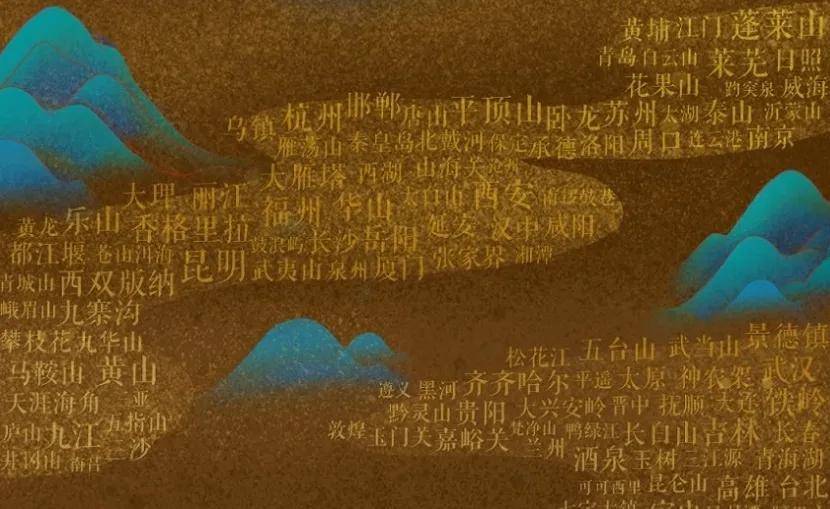 黄埔江门蓬莱山
青岛白云山莱芜日照
花果山趵突泉威海
乌镇杭州邯郸唐山平顶山卧龙苏州太湖泰山沂蒙山
雁荡山秦皇岛北戴河保定承德洛阳周口连云港南京
大雁塔西湖山海关沧州
大理丽江福州华山太白山西安南锣鼓巷
黄龙乐山香格里拉鼓浪屿长沙岳阳延安汉中咸阳
都江堰苍山洱海昆明武夷山泉州厦门张家界湘潭
青城山西双版纳
峨眉山九寨沟
攀枝花九华山
马鞍山黄山
天涯海角亚
庐山九江五指山
井冈山南昌三沙
松花江五台山武当山景德镇
遵义黑河齐齐哈尔平遥太原神农架武汉
黔灵山贵阳大兴安岭晋中抚顺大连铁岭
敦煌玉门关嘉峪关梵净山鸭绿江长白山吉林长春
兰州酒泉玉树三江源青海湖
可可西里昆仑山高雄台北